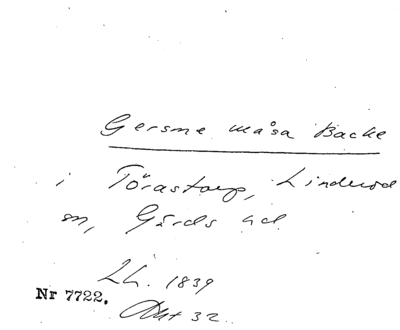 Gersme måsa Backe
i Törastorp, Linderöd
sn, Gärds hd.
LL. 1839
Nr 7722.
Akt 32